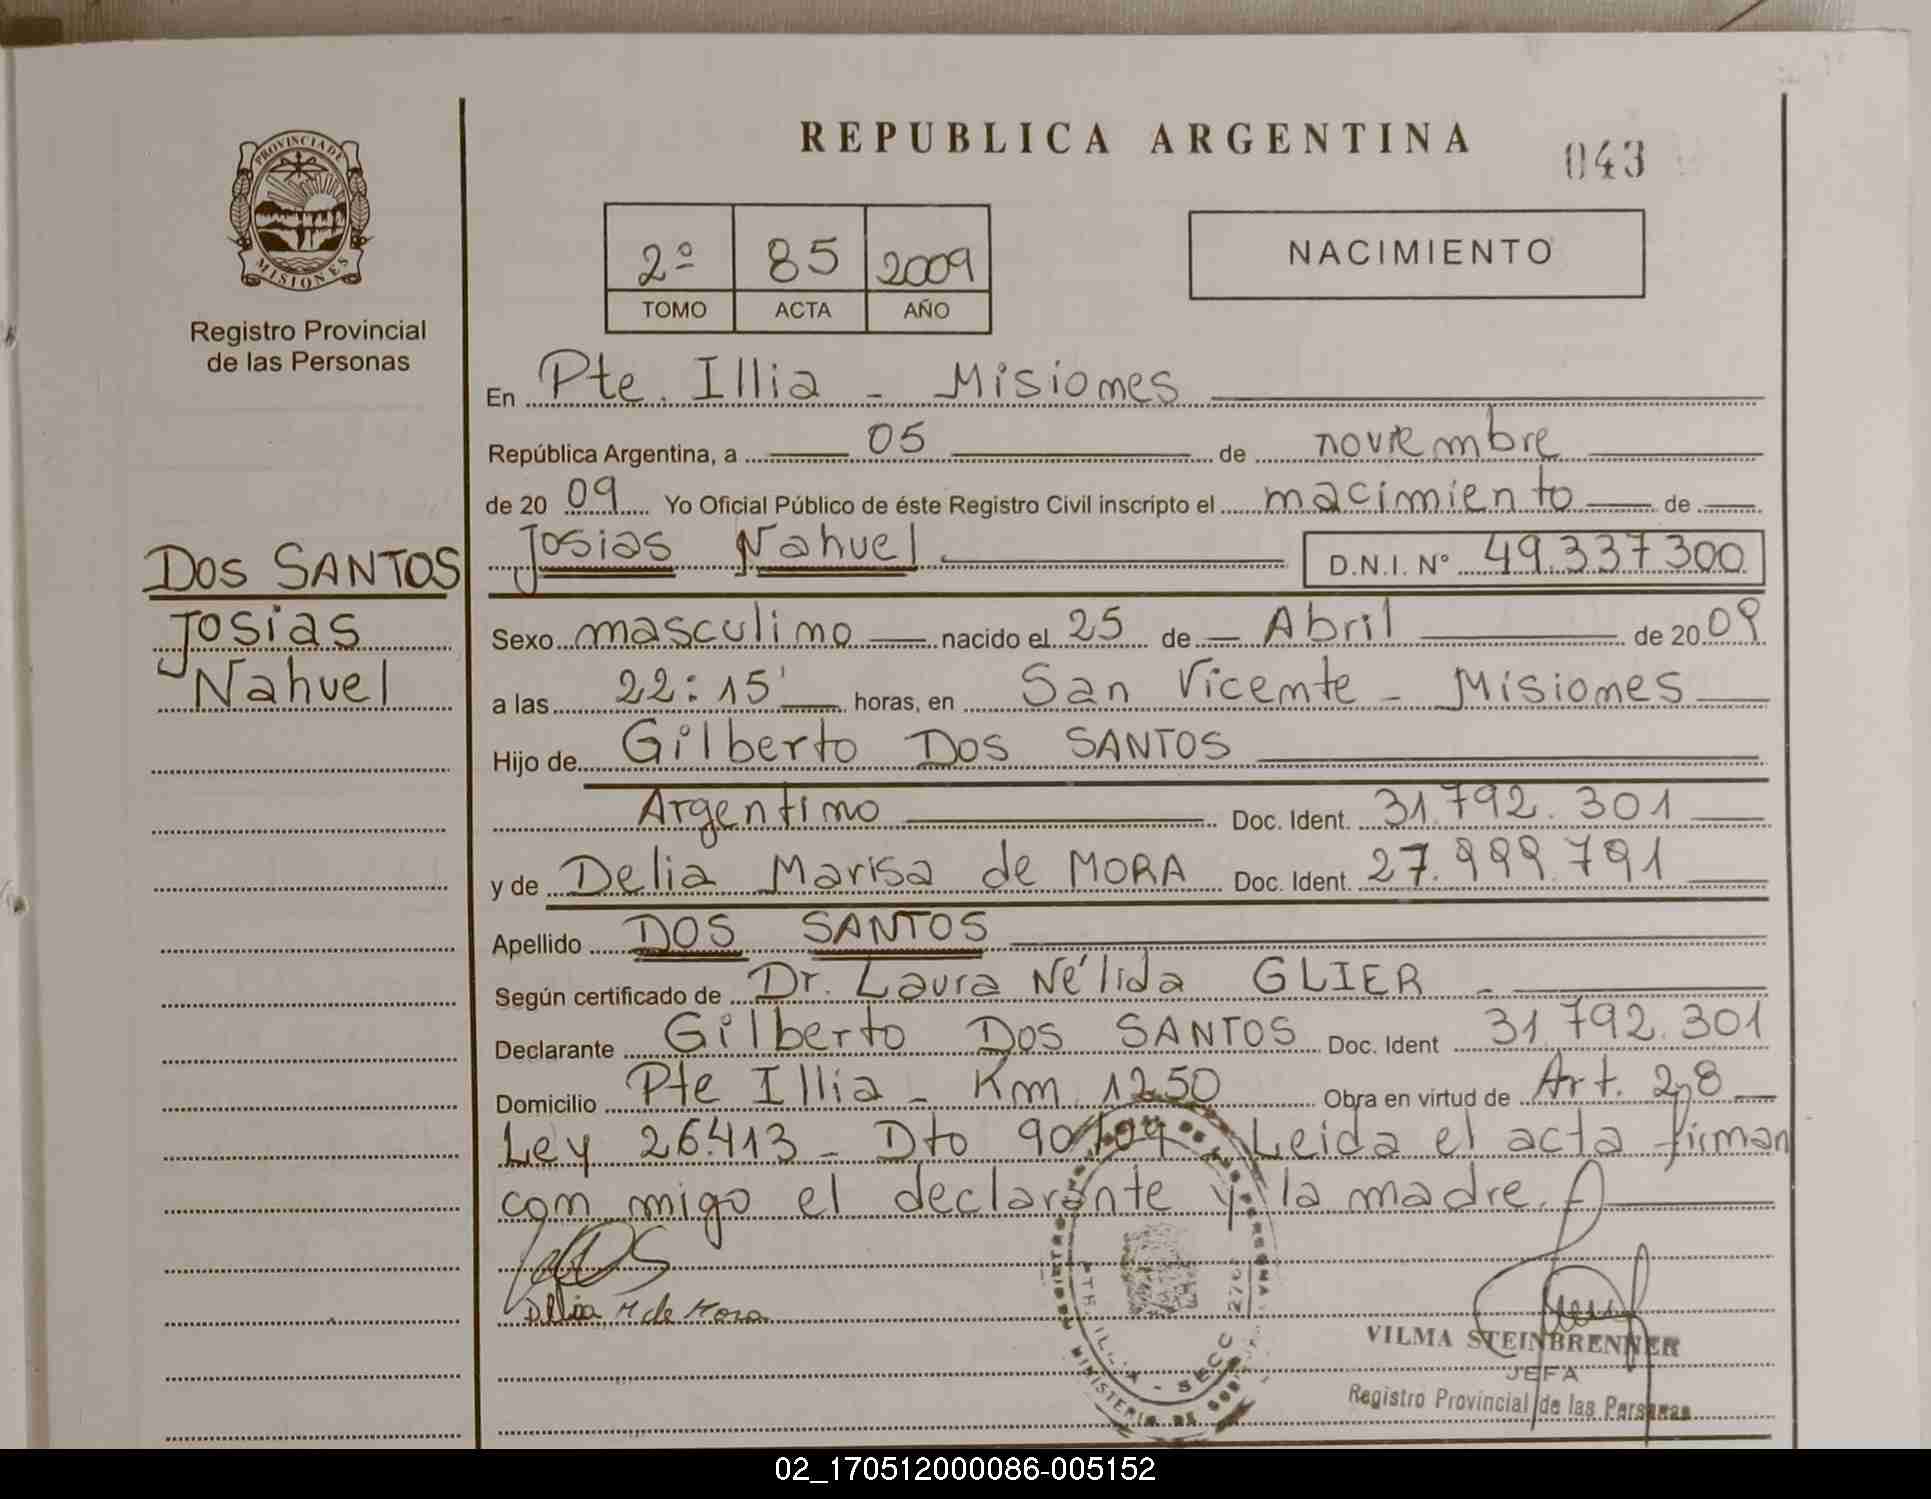 REPUBLICA ARGENTINA
043
PROVINCIA DE
MISIONES
Registro Provincial
de las Personas
2º 85 2009
TOMO ACTA AÑO
NACIMIENTO
En Pte. Illia - Misiones
República Argentina, a 05 de noviembre
de 20 09 Yo Oficial Público de éste Registro Civil inscripto el nacimiento de
Josias Nahuel D.N.I. Nº 49.337.300
DOS SANTOS
Josias
Nahuel
Sexo masculino nacido el 25 de Abril de 20 09
a las 22:15' horas, en San Vicente - Misiones
Hijo de Gilberto DOS SANTOS
Argentino Doc. Ident. 31.792.301
y de Delia Marisa de MORA Doc. Ident. 27.999.791
Apellido DOS SANTOS
Según certificado de Dr. Laura Nélida GLIER -
Declarante Gilberto DOS SANTOS Doc. Ident 31.792.301
Domicilio Pte Illia - Km 1250 Obra en virtud de Art. 28
Ley 26.413 - Dto 90/09. Leida el acta firman
con migo el declarante y la madre.
Delia M de Mora
PTE. ILLIA - SECC 2706
MINISTERIO DE
VILMA STEINBRENNER
JEFA
Registro Provincial de las Personas
02_170512000086-005152